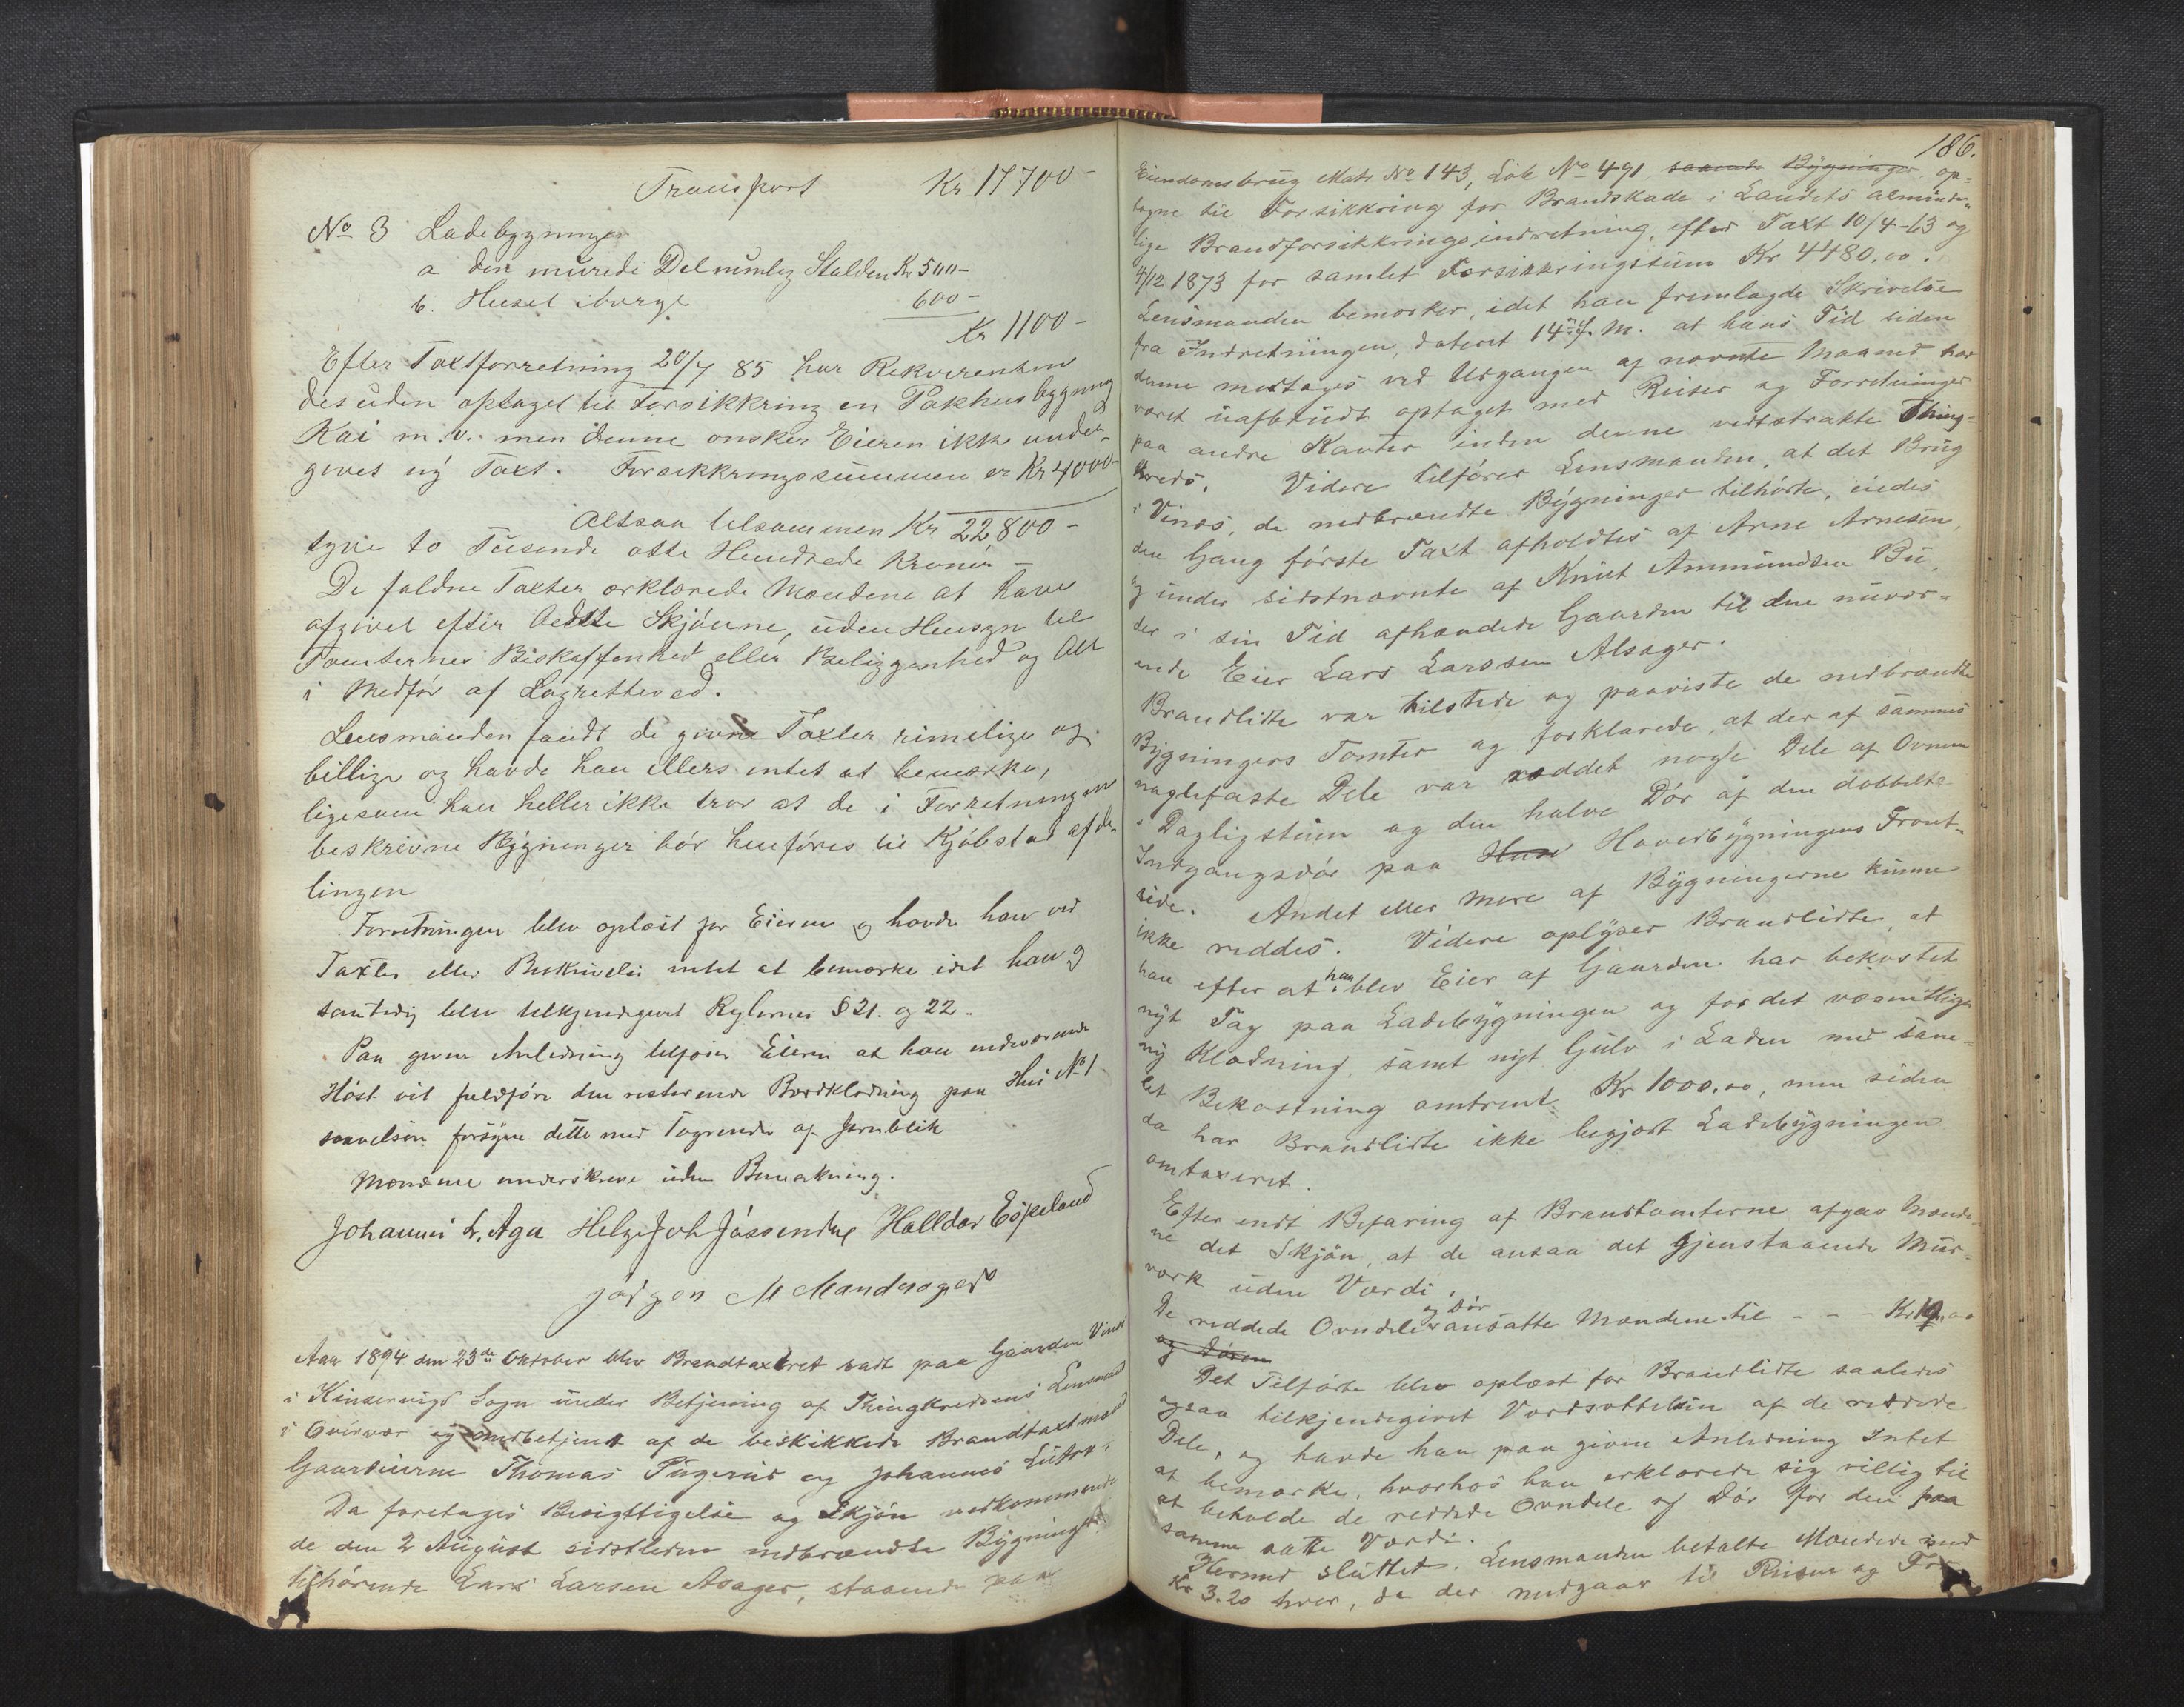 Transport Kr 17700-
No 3 Ladebygninger
a den murede Del nemlig Stalden Kr 500-
b. Huset iøvrigt 600-
Kr 1100-
Efter Taxtforretning 20/7 85 har Rekvirenten
desuden optaget til Forsikkring en Pakhusbygning
Kai m.v. men denne ønsker Eieren ikke under-
gives ny Taxt. Forsikkringssummen er Kr 4000-
Altsaa tilsammen Kr 22800-
tyve to Tusende otte Hundrede Kroner -
De faldne Taxter erklærede Mændene at have
afgivet efter bedste Skjønne, uden Hensyn til
Tomternes Beskaffenhed eller Beliggenhed og Alt
i Medfør af Lagrettesed.
Lensmanden fandt de givne Taxter rimelige og
billige og havde han ellers intet at bemærke,
ligesom han heller ikke tror at de i Forretningen
beskrevne Bygninger bør henføres til Kjøbstad afde-
lingen
Forretningen blev oplæst for Eieren og havde han ved
Taxter eller Beskrivelse intet at bemærke idet han og
samtidig blev tilkjendegivet Reglernes § 21. og 22.
Paa given Anledning tilføier Eieren at han indeværende
Høst vil fuldføre den resterende Bordklædning paa Hus No 1
saavelsom forsyne dette med Tagrender af Jernblik
Mændene underskrev uden Bemærkning.
Johannes L. Aga Helge Joh Jåssendal Halldor Espeland
Jørgen M Mandsager
Aar 1894 den 23de Oktober blev Brandtaxtret sadt paa Gaarden Vines
i Kinserviks Sogn under Betjening af Thingkredsens Lensmand
i Overvær og medbetjent af de beskikkede Brandtaxtmænd
Gaardeierne Thomas og Johannes
Da foretages Besigtigelse og Skjøn vedkommende
de den 2 August sidstleden nedbrændte Bygninger
tilhørende Lars Larsen Asager, staaende paa
186.
Eiendomsbrug Matr No 143, Løb No 491 staaende Bygninger, op-
tagne til Forsikkring for Brandskade i Landets alminde-
lige Brandforsikkringsindretning, efter Taxt 10/4-63 og
4/12 1873 for samlet Forsikkringssum Kr 4480.00.
Lensmanden bemærker, idet han fremlagde Skrivelse
fra Indretningen, dateret 14de f. M. at hans Tid siden
denne modtages ved Udgangen af nævnte Maaned har
været uafbrudt optaget med Reiser og Forretninger
paa andre Kanter inden denne vidtstrakte Thing-
kreds. Videre tilfører Lensmanden, at det Brug
i Vines, de nedbrændte Bygninger tilhørte, eiedes
den Gang første Taxt afholdtes af Arne Arnesen,
og under sidstnævnte af Knut Ammundsen Bu,
der i sin Tid afhændede Gaarden til den nuvær-
ende Eier Lars Larssen Alsager.
Brandlidte var tilstede og paaviste de nedbrændte
Bygningers Tomter og forklarede, at der af sammes
naglefaste Dele var reddet nogle Dele af Ovnen
i Dagligstuen og den halve Dør af den dobbelte
Indgangsdør paa Huse Hovedbygningens Front-
side. Andet eller mere af Bygningerne kunne
ikke reddes. Videre oplyser Brandlidte, at
han efter at han blev Eier af Gaarden har bekostet
nyt Tag paa Ladebygningen og for det væsentligste
ny Klædning, samt nyt Gulv i Laden med sam-
let Bekostning omtrent Kr 1000.00, men siden
da har Brandlidte ikke begjært Ladebygningen
omtaxeret.
Efter endt Befaring af Brandtomterne afgav Mænde-
ne det Skjøn, at de ansaa det gjenstaaende Mur-
værk uden Værdi.
De reddede Ovndele og Dør ansatte Mændene til - - - Kr
og Døren
Det Tilførte blev oplæst for Brandlidte saaledes
ogsaa tilkjendegivet Værdsættelsen af de reddede
Dele, og havde han paa given Anledning Intet
at bemærke, hvorhos han erklærede sig villig til
at beholde de reddede Ovndele og Dør for den paa
samme satte Værdi.
Hermed sluttet. Lensmanden betalte Mændene med
Kr 3.20 hver, da der medgaar til Reisen og For